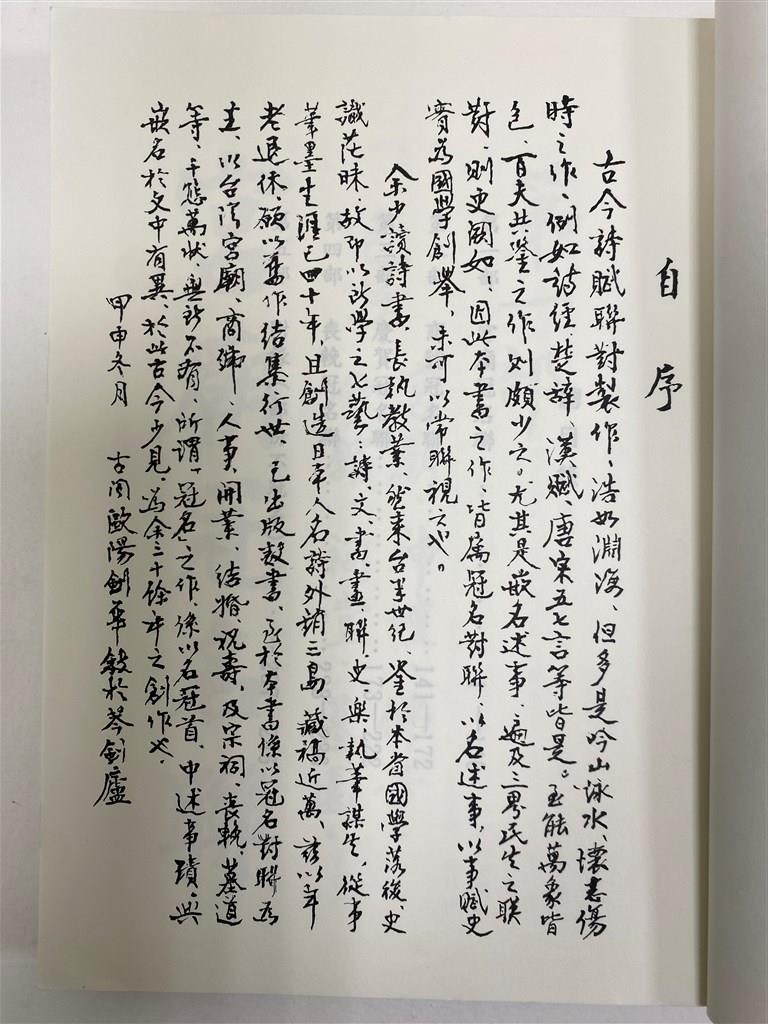 自序
古今詩賦聯對製作、浩如淵海、但多是吟山詠水、懷志傷
時之作、例如詩經、楚辭、漢賦、唐宋五七言等皆是。至能萬象皆
色、百夫共鑒之作則頗少之。尤其是嵌名述事、遍及三界民生之聯
對、則史闕如、因此本書之作、皆屬冠名對聯、以名述事、以事賦史
實為國學創舉、未可以常聯視之也。
余少讀詩書、長執教業、然來台半世紀、鑒於本省國學落後、史
識茫昧、故即以所學之七藝：詩、文、書、畫、聯、史、樂、執筆謀生、從事
筆墨生涯已四十年、且創造日本人名詩外銷三島、藏稿近萬、茲以年
老退休、願以舊作結集行世、已出版數書、至於本書係以冠名對聯為
主、以台灣宮廟、商號、人事、開業、結婚、祝壽、及宗祠、喪輓、墓道
等、千態萬狀、無所不有、所謂「冠名之作、係以名冠首、中述事蹟、與
嵌名於文中有異、於此古今少見、為余三十餘年之創作也。
甲申冬月 古閩歐陽劍華敍於琴劍廬